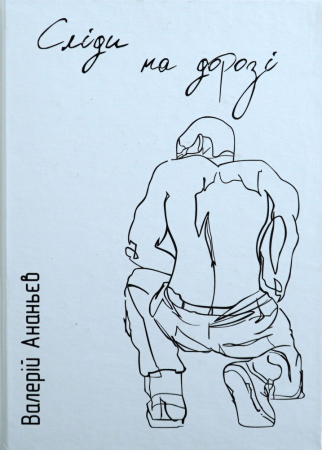 Сліди
на дорозі
Валерій Ананьєв